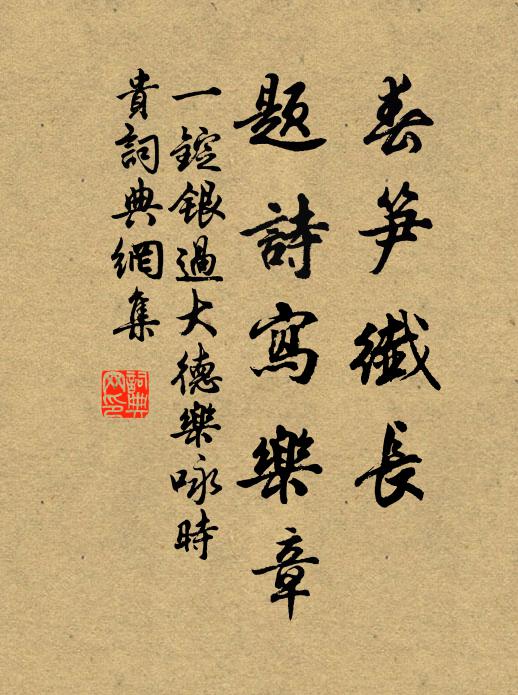 春笋纖長
題詩寫樂章
一錠銀過大德樂咏時
貴詞典網集
詞典
网印